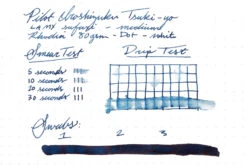 Pilot Iroshizuku Tsuki-yo
LAMY Safari - medium
Rhodia 80gram - Dot - white
Smear Test
Drip Test
5 seconds
10 seconds
20 seconds
30 seconds
Swabs:
1 2 3